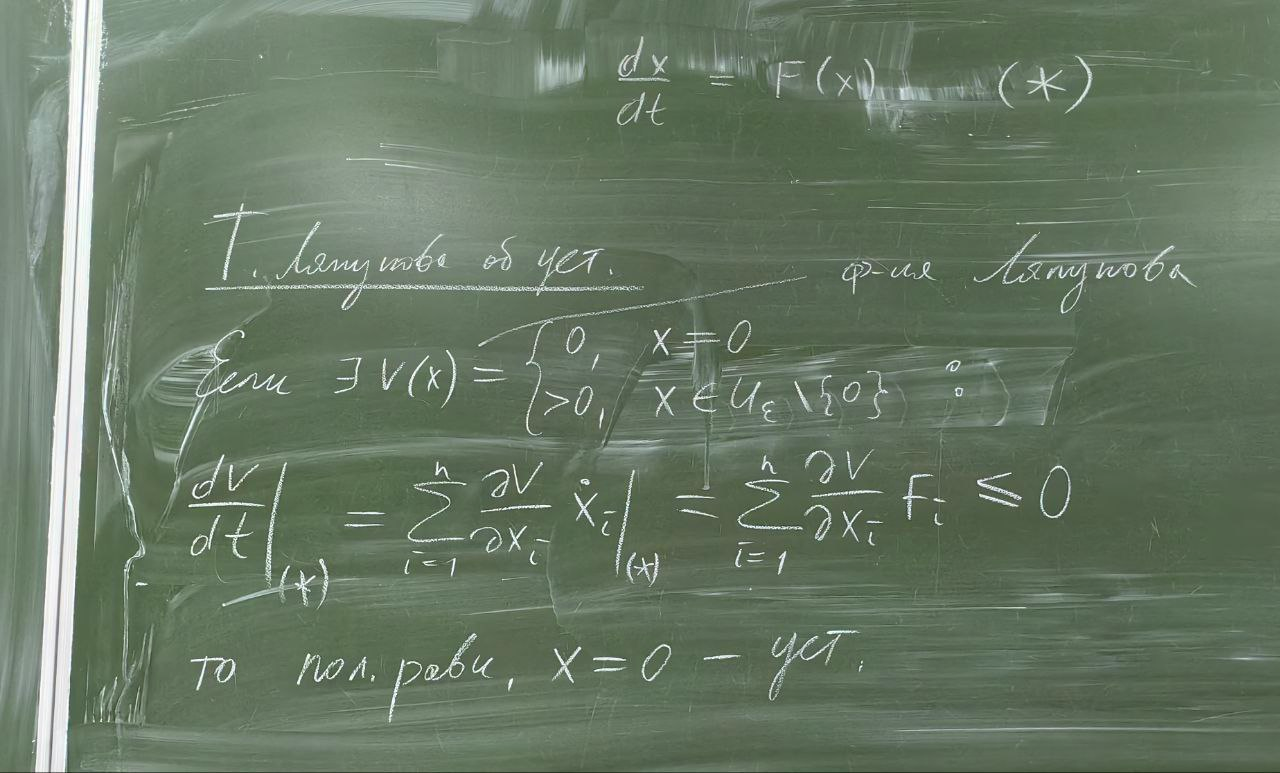 dx/dt = F(x) (*)
Т. Ляпунова об уст.
ф-ия Ляпунова
Если ∃ V(x) = { 0, x = 0
>0, x ∈ U_ε \ {0} :
dV/dt |_(*) = ∑_{i=1}^{n} ∂V/∂x_i ẋ_i |_(*) = ∑_{i=1}^{n} ∂V/∂x_i F_i ≤ 0
то пол. равн. x = 0 – уст.